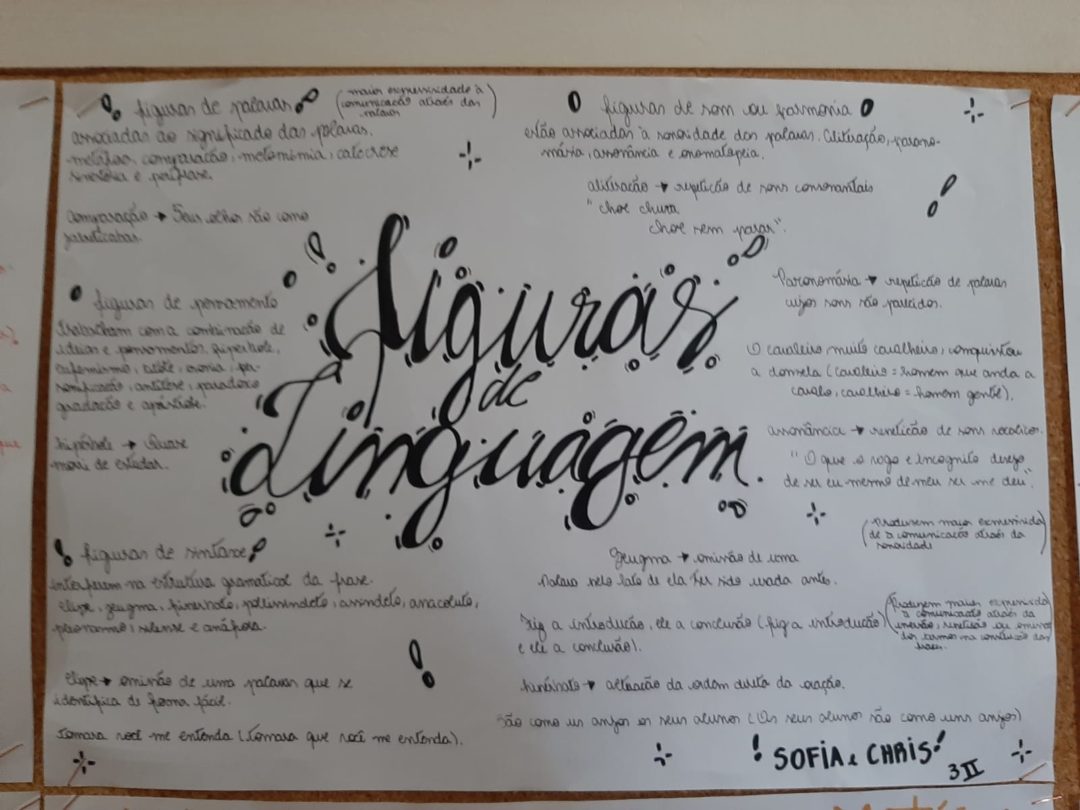 figuras de palavras
(maior expressividade à
comunicação através das
palavras)
associadas ao significado das palavras.
metáfora, comparação, metonímia, catacrese
sinestesia e perífrase.
comparação → Seus olhos são como
jabuticabas.
figuras de pensamento
trabalham com a combinação de
ideias e pensamentos, hipérbole,
eufemismo, litote, ironia, per-
sonificação, antítese, paradoxo
gradação e apóstrofe.
hipérbole → Quase
morri de estudar.
figuras de som ou harmonia
estão associadas à sonoridade das palavras. aliteração, parono-
másia, assonância e onomatopeia.
aliteração → repetição de sons consonantais
"chove chuva
chove sem parar".
Paronomásia → repetição de palavras
cujos sons são parecidos.
O cavaleiro, muito cavalheiro, conquistou
a donzela (cavaleiro = homem que anda a
cavalo, cavalheiro = homem gentil).
assonância → repetição de sons vocálicos.
"O que o vago e incognito desejo
de ser eu mesmo de meu ser me deu".
(Produzem maior expressivida
de à comunicação através da
sonoridade)
Figuras
de
Linguagem
figuras de sintaxe
interferem na estrutura gramatical da frase.
elipse, zeugma, hipérbato, polissíndeto, assíndeto, anacoluto,
pleonasmo, silepse e anáfora.
Elipse → omissão de uma palavra que se
identifica de forma fácil.
Tomara você me entenda (Tomara que você me entenda).
Zeugma → omissão de uma
Palavra pelo fato de ela ter sido usada antes.
Fiz a introdução, ele a conclusão (fiz a introdução
e ele a conclusão).
(Produzem maior expressivida
à comunicação através da
inversão, repetição ou omissão
dos termos na construção das
frases.
hipérbato → alteração da ordem direta da oração.
São como uns anjos os seus alunos (Os seus alunos são como uns anjos)
SOFIA e CHRIS
3II